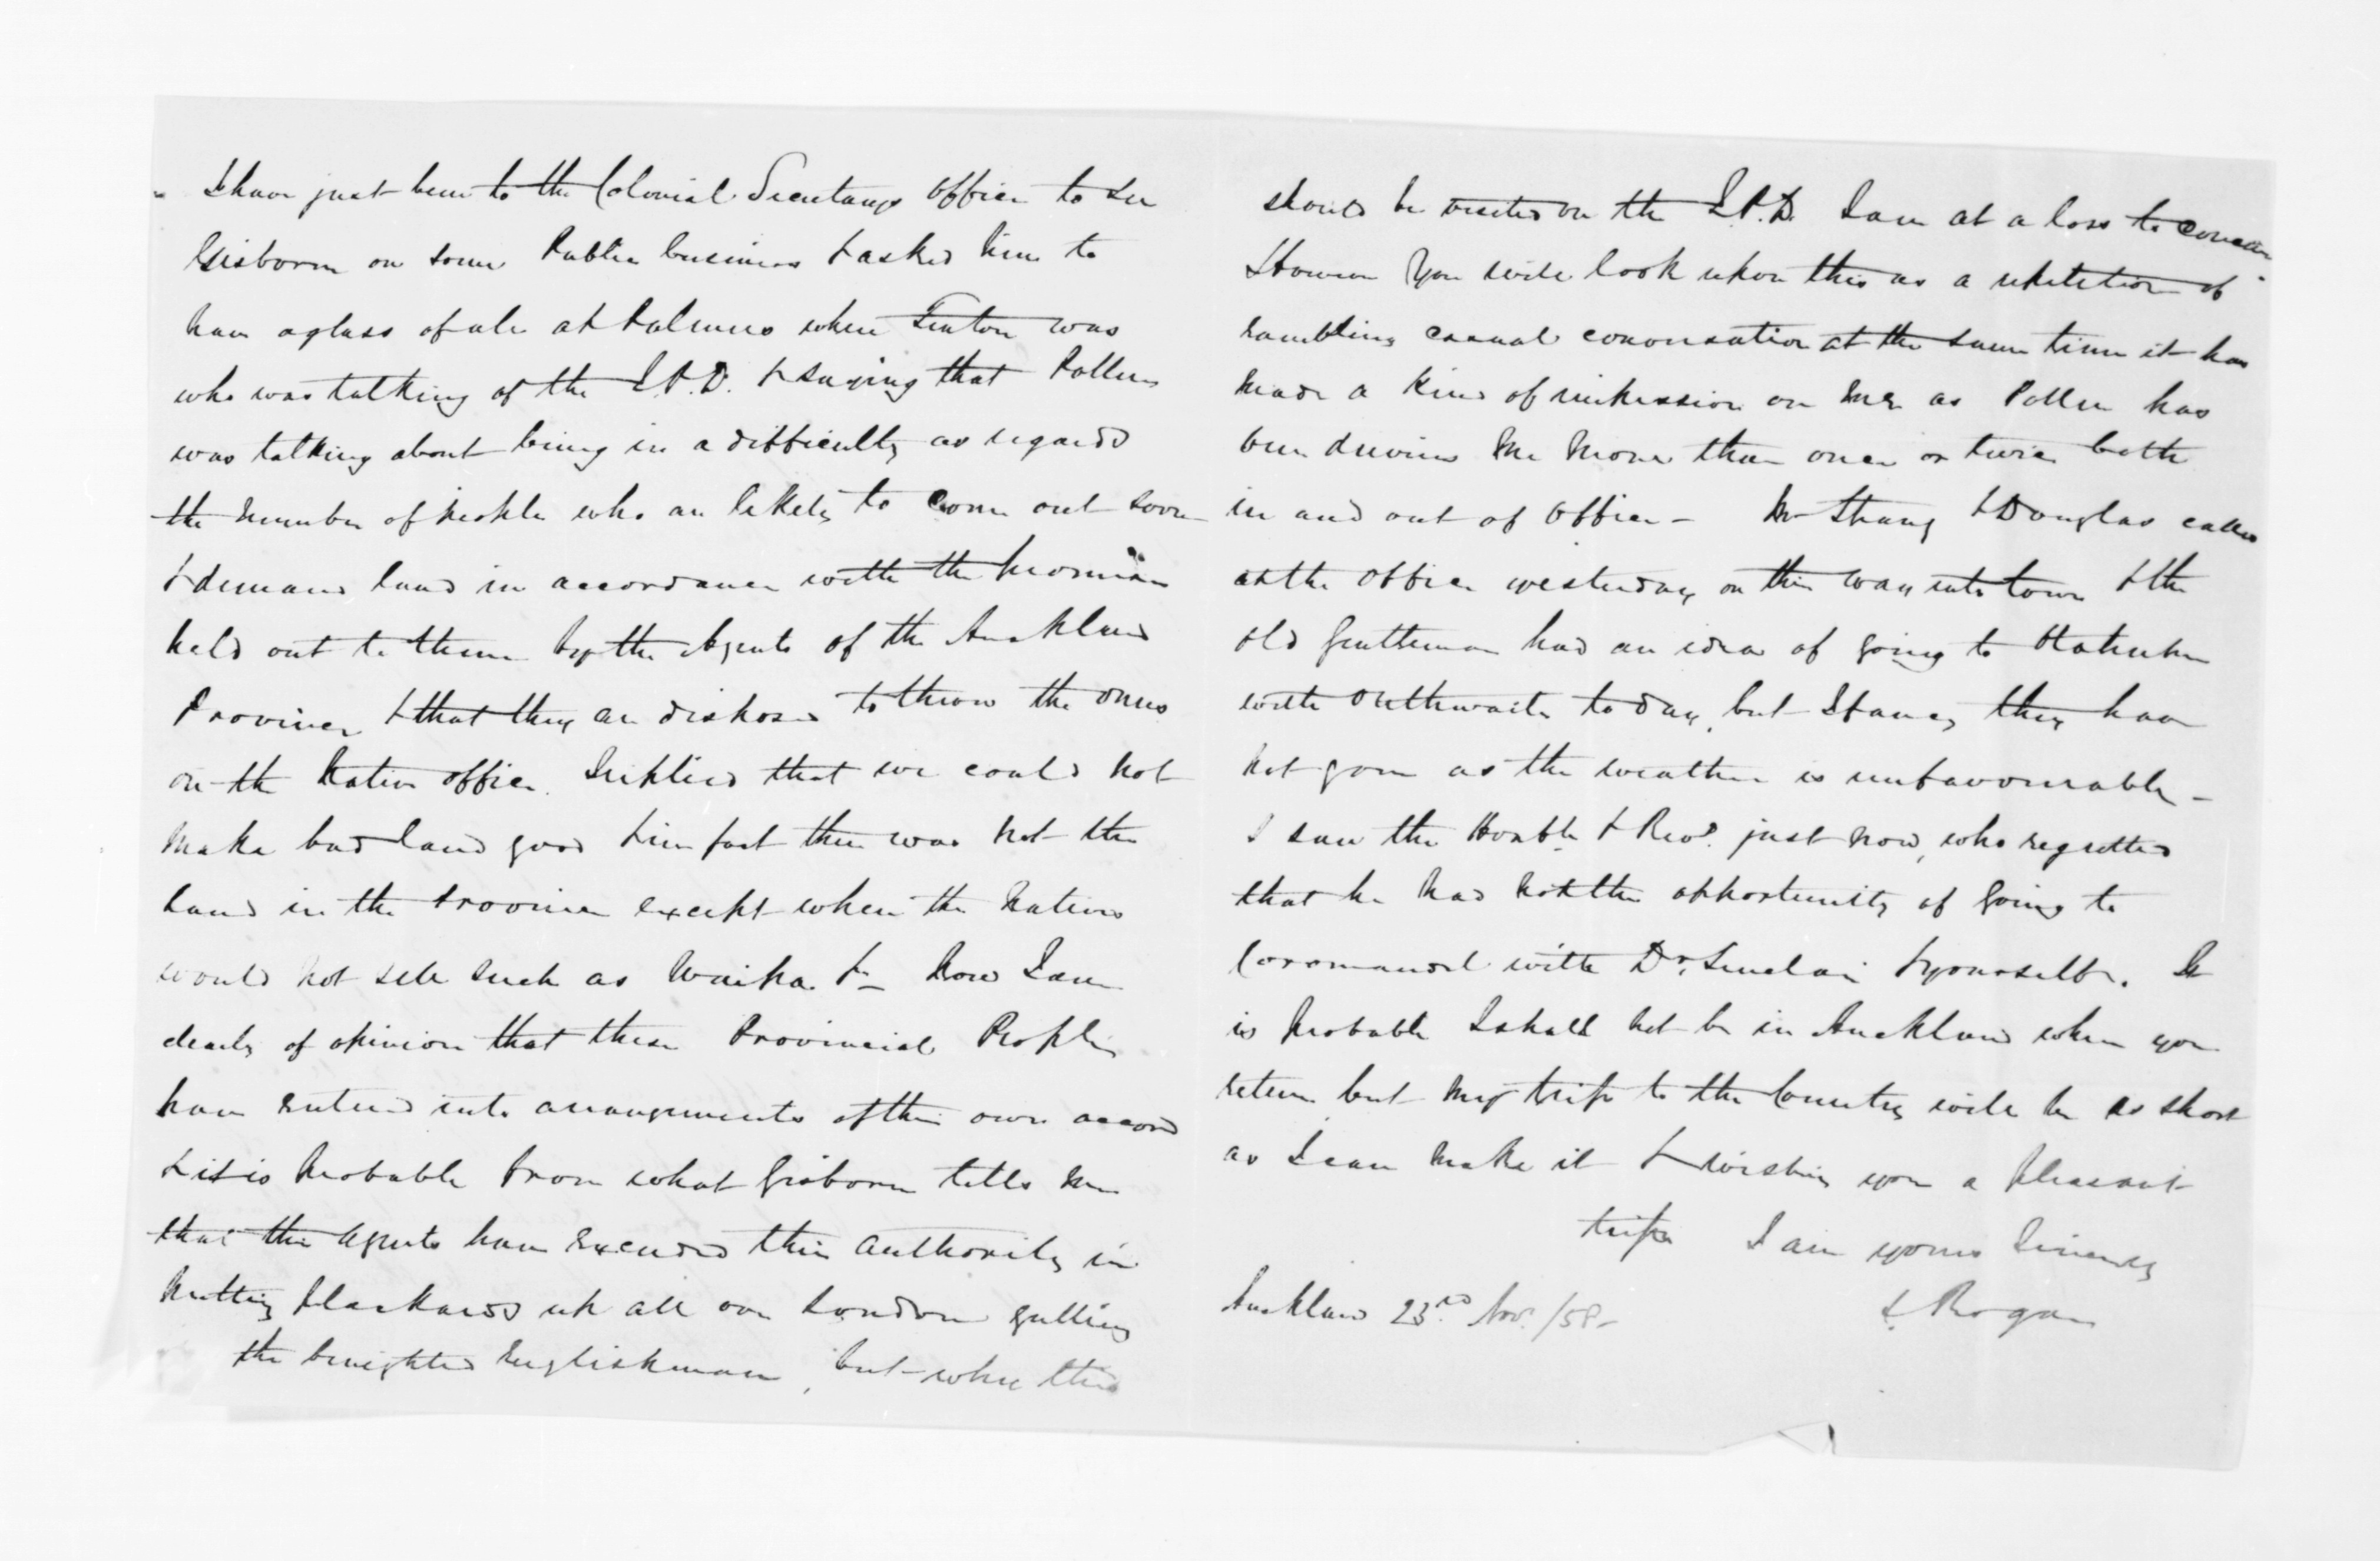 I have just been to the Colonial Secretarys Office to see
Gisborne on some Public business & asked him to
have a glass of ale at Palmers where Fenton was
who was talking of the L.P.D. & saying that Pollen
was talking about being in a difficulty as regards
the number of people who are likely to come out soon
& demand land in accordance with the promises
held out to them by the Agents of the Auckland
Province & that they are disposed to throw the onus
on the Native Office. I replied that we could not
make bad land good & in fact there was not the
land in the Province except where the Natives
would not sell such as Waipa &c Now I am
clearly of opinion that these Provincial People
have entered into arrangements of their own accord
& it is probable from what Gisborne tells me
that the Agents have exceeded their authority in
putting plackards up all over London gulling
the benighted Englishman, but why this
should be visited on the L.P.D. I am at a loss to conceive
However you will look upon this as a repetition of
rambling casual conversation at the same time it has
made a kind of impression on me as Pollen has
been driving me more than once or twice both
in and out of Office - Mr Strang & Douglas called
at the Office yesterday on their way into town & the
old Gentleman had an idea of going to
with Outhwaite to day, but I fancy they have
not gone as the weather is unfavourable -
I saw the Honble & Revd. just now, who regretted
that he had not the opportunity of going to
Coromandel with Dr. Sinclair & yourself. It
is probable I shall not be in Auckland when you
return but my trip to the Country will be as short
as I can make it & wishing you a pleasant
trip I am yours sincerely
J. Rogan
Auckland 23rd. Nov. /58-